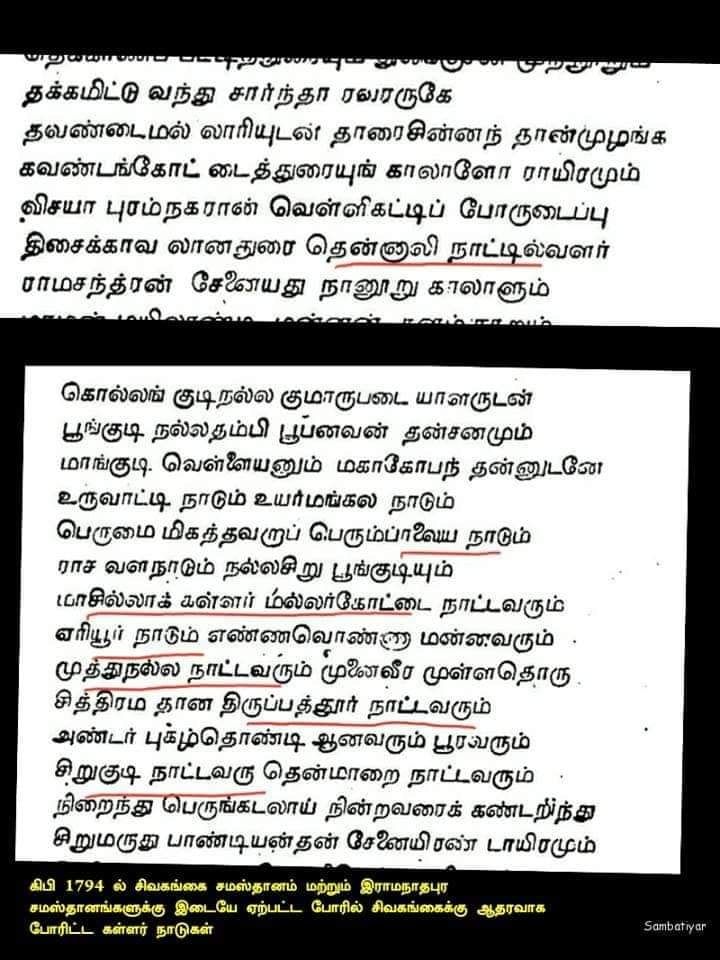 தக்கமிட்டு வந்து சார்ந்தா ரவரருகே
தவண்டைமல் லாரியுடன் தாரைசின்னந் தான்முழங்க
கவண்டங்கோட் டைத்துரையுங் காலாளோ ராயிரமும்
விசயா புரம்நகரான் வெள்ளிகட்டிப் போருடைப்பு
திசைக்காவ லானதுரை தென்னாலி நாட்டில்வளர்
ராமசந்த்ரன் சேனையது நானூறு காலாளும்
கொல்லங் குடிநல்ல குமாருபடை யாளருடன்
பூங்குடி நல்லதம்பி பூபனவன் தன்சனமும்
மாங்குடி வெள்ளையனும் மகாகோபந் தன்னுடனே
உருவாட்டி நாடும் உயர்மங்கல நாடும்
பெருமை மிகத்தவறாப் பெரும்பாலைய நாடும்
ராச வளநாடும் நல்லசிறு பூங்குடியும்
மாசில்லாக் கள்ளர் மல்லர்கோட்டை நாட்டவரும்
ஏரியூர் நாடும் எண்ணவொண்ணா மன்னவரும்
முத்துநல்ல நாட்டவரும் முனைவீர முள்ளதொரு
சித்திரம தான திருப்பத்தூர் நாட்டவரும்
அண்டர் புகழ்தொண்டி ஆனவரும் பூரவரும்
சிறுகுடி நாட்டவரு தென்மாறை நாட்டவரும்
நிறைந்து பெருங்கடலாய் நின்றவரைக் கண்டறிந்து
சிறுமருது பாண்டியன்தன் சேனையிரண் டாயிரமும்
கிபி 1794 ல் சிவகங்கை சமஸ்தானம் மற்றும் இராமநாதபுர
சமஸ்தானங்களுக்கு இடையே ஏற்பட்ட போரில் சிவகங்கைக்கு ஆதரவாக
போரிட்ட கள்ளர் நாடுகள்
Sambatiyar